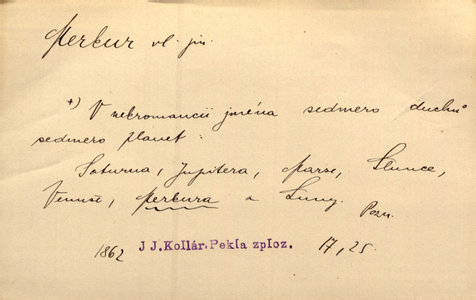 Merkur vl. jm.
*) V nekromancii jména sedmero duchů
sedmero planet:
Saturna, Jupitera, Marse, Slunce,
Venuše, Merkura a Luny.
Pozn.
1862 J J. Kollár. Pekla zploz. 17, 25.